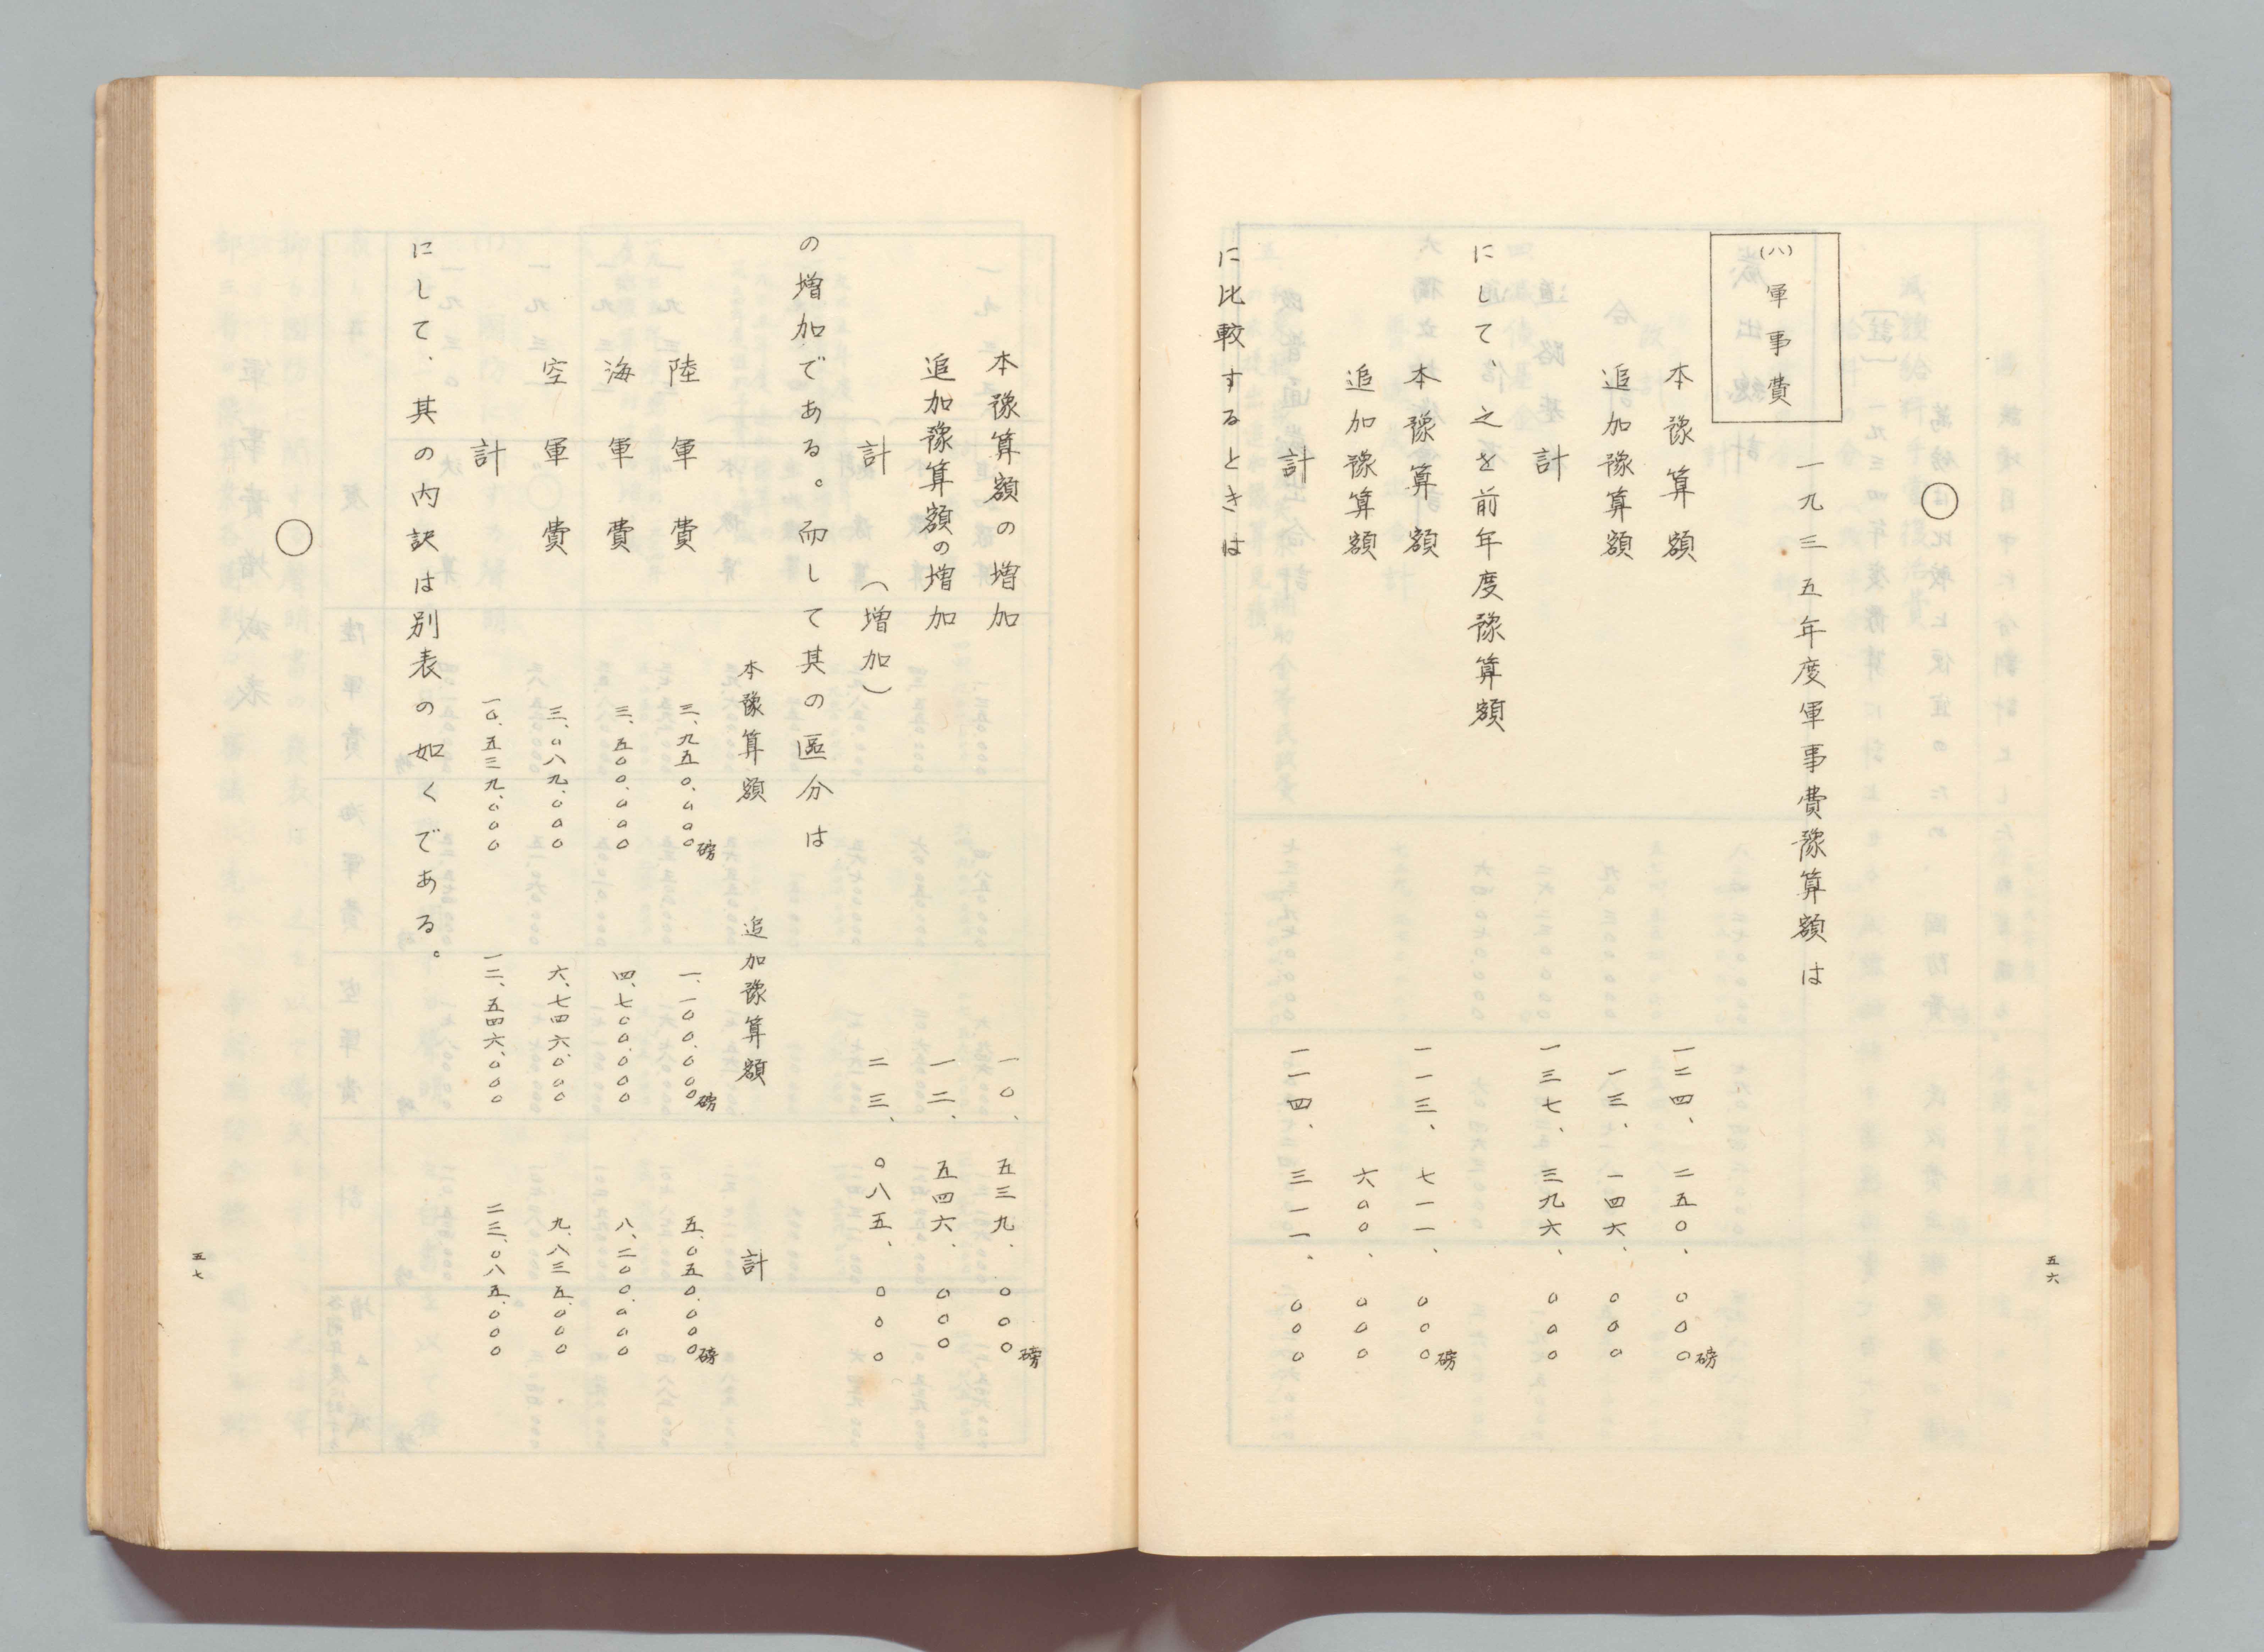 ○
(八)軍事費
一九三五年度軍事費豫算額は
本豫算額 一二四、二五〇、〇〇〇磅
追加豫算額 一三、一四六、〇〇〇
計 一三七、三九六、〇〇〇
にして、之を前年度豫算額
本豫算額 一一三、七一一、〇〇〇磅
追加豫算額 六〇〇、〇〇〇
計 一一四、三一一、〇〇〇
に比較するときは
五六
本豫算額の増加 一〇、五三九、〇〇〇磅
追加豫算額の増加 一二、五四六、〇〇〇
計(増加) 二三、〇八五、〇〇〇
の増加である。而して其の區分は
本豫算額 追加豫算額 計
陸軍費 三、九五〇、〇〇〇磅 一、一〇〇、〇〇〇磅 五、〇五〇、〇〇〇磅
海軍費 三、五〇〇、〇〇〇 四、七〇〇、〇〇〇 八、二〇〇、〇〇〇
空軍費 三、〇八九、〇〇〇 六、七四六、〇〇〇 九、八三五、〇〇〇
計 一〇、五三九、〇〇〇 一二、五四六、〇〇〇 二三、〇八五、〇〇〇
にして、其の内訳は別表の如くである。
○
五七